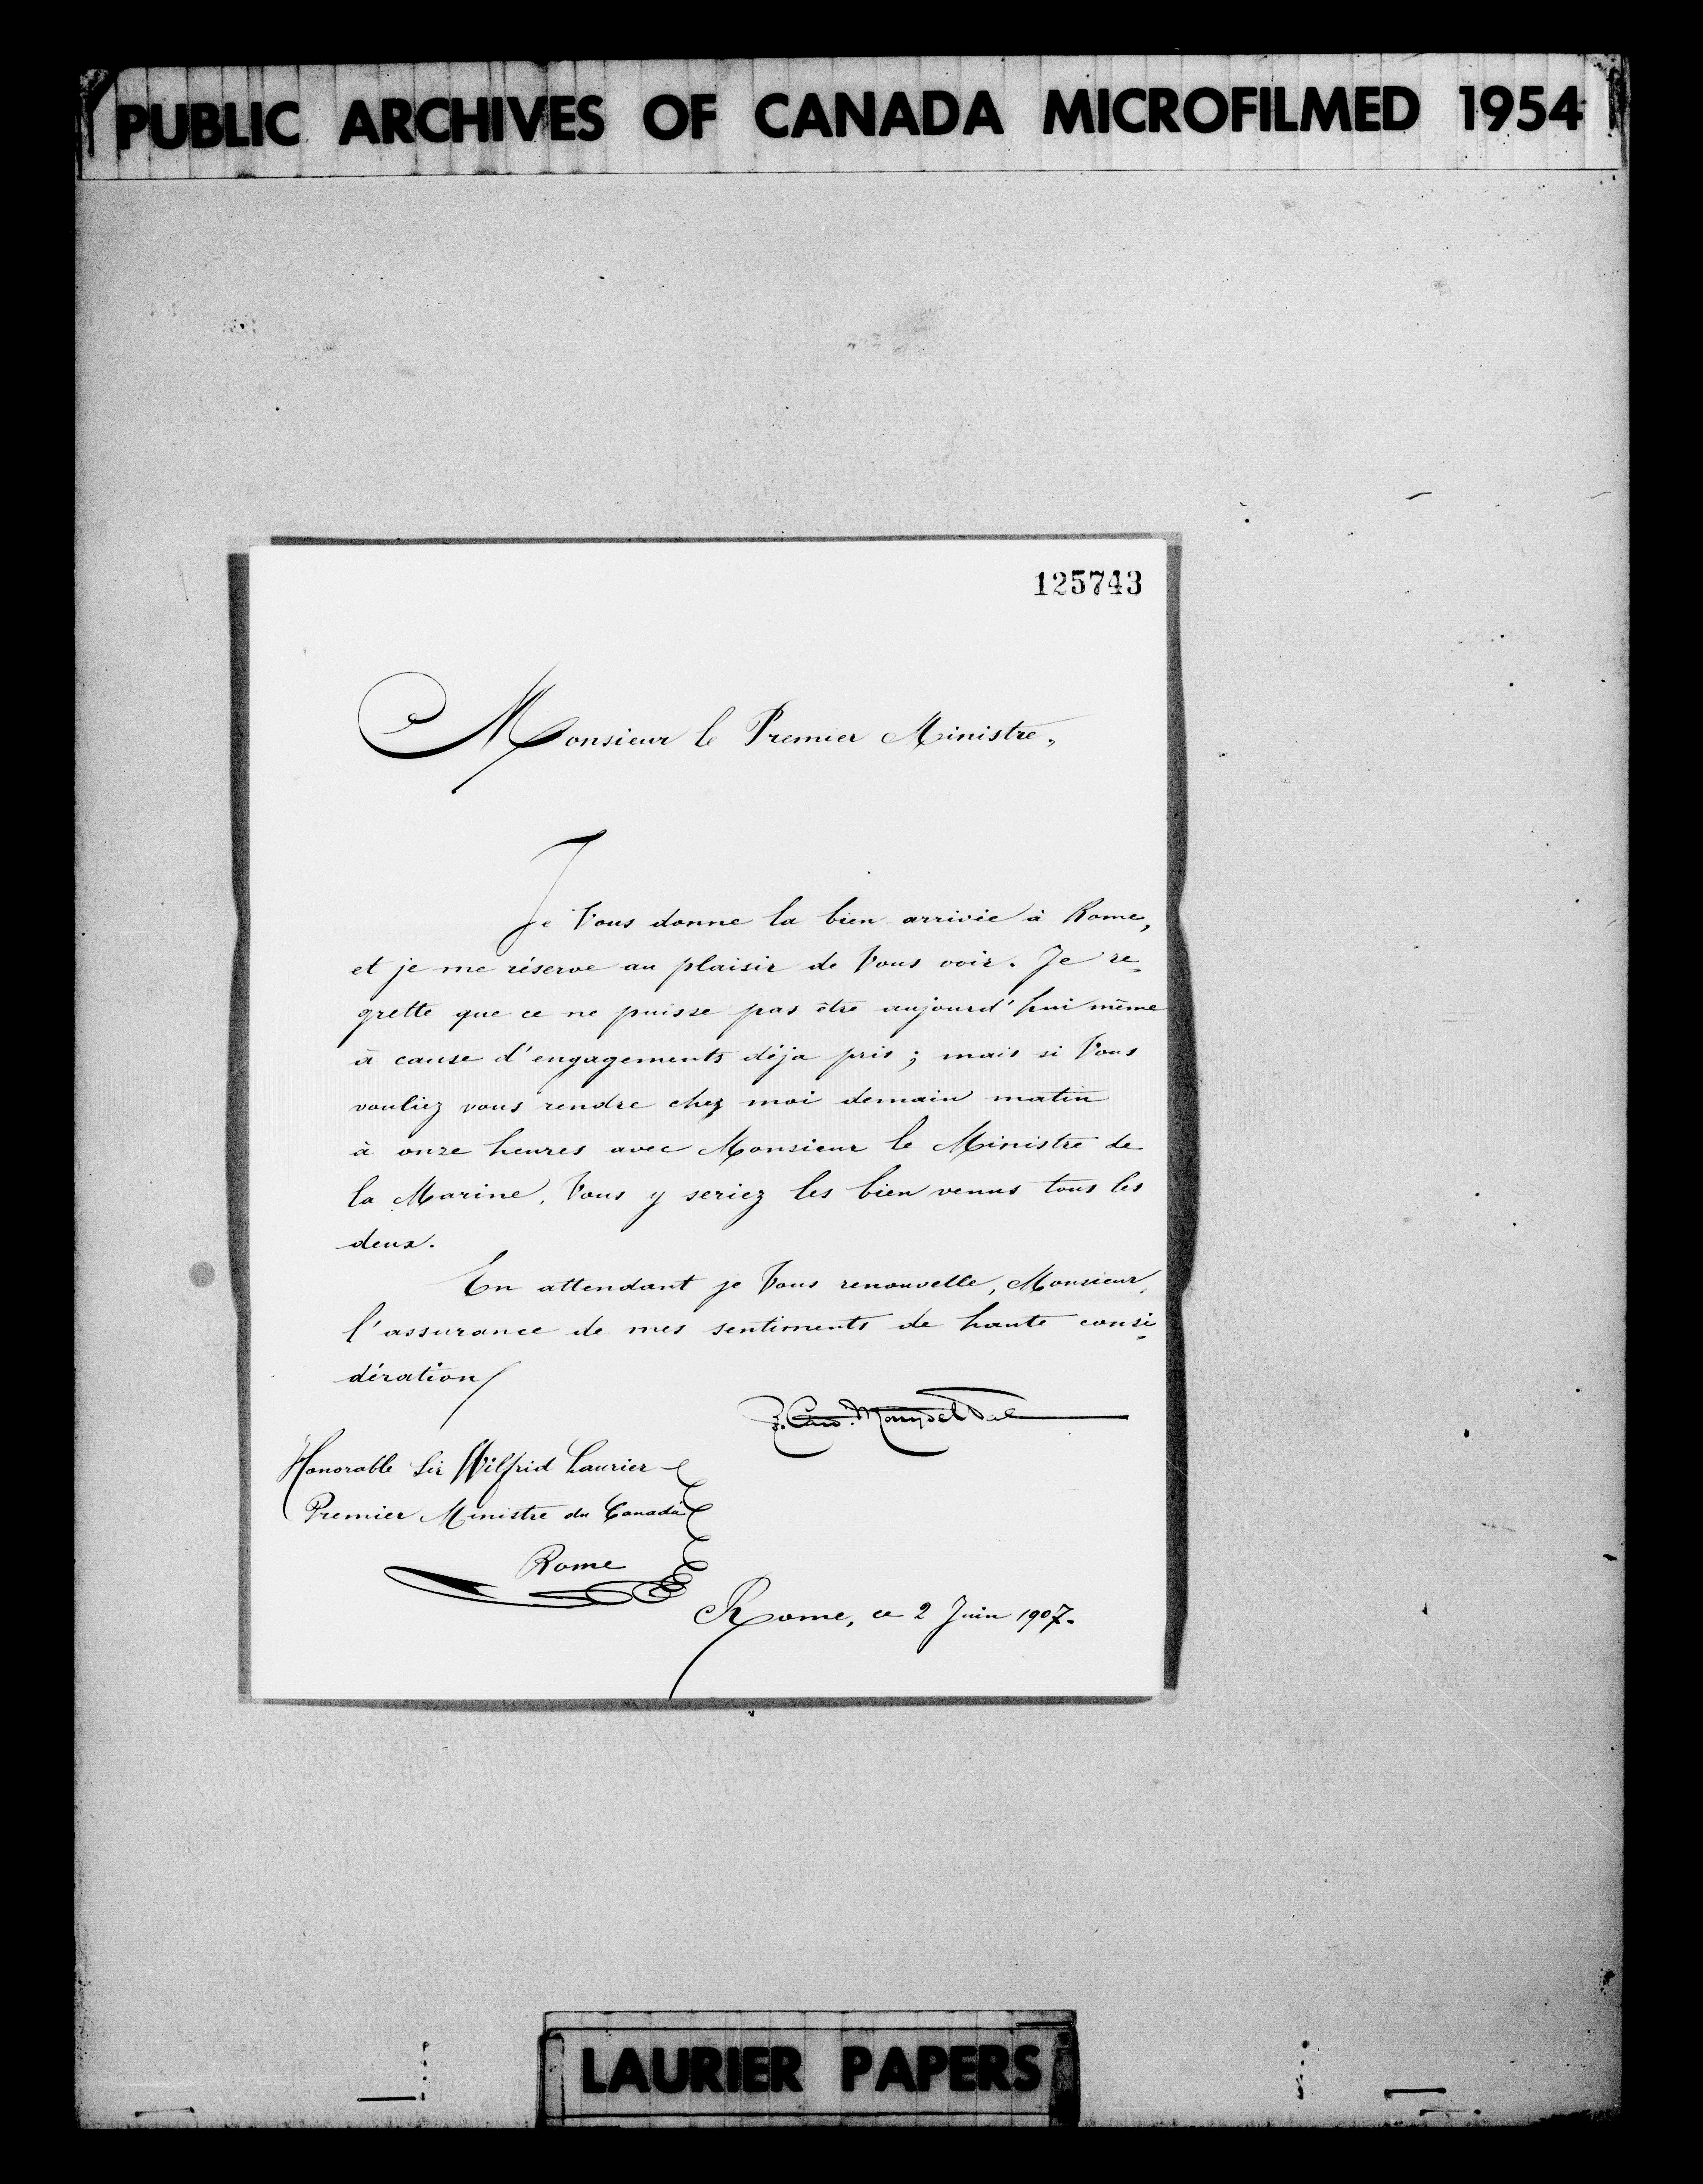 PUBLIC ARCHIVES OF CANADA MICROFILMED 1954
125743
Monsieur le Premier Ministre,
Je Vous donne la bien arrivée à Rome,
et je me réserve au plaisir de Vous voir. Je re-
grette que ce ne puisse pas être aujourd'hui même
à cause d'engagements déja pris; mais si Vous
vouliez vous rendre chez moi demain matin
à onze heures avec Monsieur le Ministre de
la Marine, Vous y seriez les bien venus tous les
deux.
En attendant je Vous renouvelle, Monsieur,
l'assurance de mes sentiments de haute consi-
dération
R. Card. Merry del Val
Honorable Sir Wilfrid Laurier
Premier Ministre du Canada
Rome
Rome, ce 2 Juin 1907.
LAURIER PAPERS